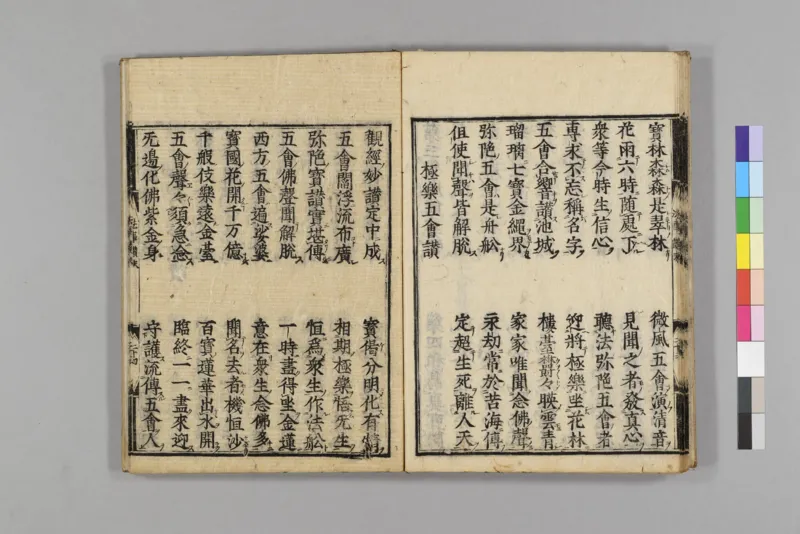 寳林森森是翠林　微風五會演清音
花雨六時随處下　見聞之者發真心
衆等今時生信心　聽法弥陁五會者
専求不忘稱名字　迎將極樂坐花林
五會合響讃池城　樓䑓樹々映雲青
瑠璃七寳金繩界　家家唯聞念佛聲
弥陁五會是舟舩　永劫常於苦海傳
但使聞聲皆解脱　定超生死離人天
極樂五會讃
觀經妙讃定中成　寳偈分明化有情
五會閻浮流布廣　相期極樂悟无生
弥陁寳讃實堪傳　恒為衆生作法舩
五會佛聲聞解脱　一時盡得坐金蓮
西方五會遍娑婆　意在衆生念佛多
寳國花開千万億　聞名去者機恒沙
千般伎樂遶金䑓　百寳蓮華出水開
五會聲々須急念　臨終一一盡來迎
无邊化佛紫金身　守護流傳五會人